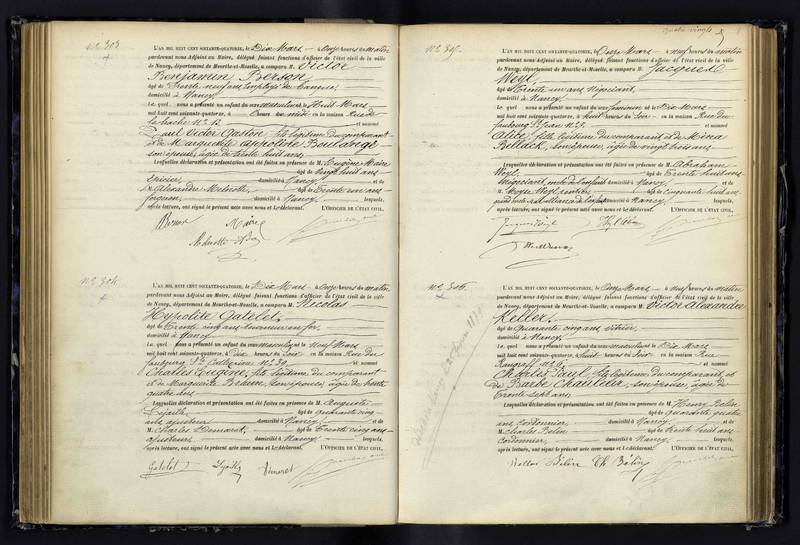 N° 303
L'AN MIL HUIT CENT SOIXANTE-QUATORZE, le Dix Mars à Onze heures du matin
pardevant nous Adjoint au Maire, délégué faisant fonctions d'officier de l'état civil de la ville
de Nancy, département de Meurthe-et-Moselle, a comparu M. Victor
Benjamin
âgé de Trente neuf ans, Employé de banque,
domicilié à Nancy
Lequel nous a présenté un enfant du sexe masculin né le Huit Mars
mil huit cent soixante-quatorze, à heures du en sa maison Rue de
N° 12 et nommé
Paul Victor Gaston, fils légitime du comparant
et de Marguerite Appoline Boulangé
son épouse, âgée de trente huit ans
Lesquelles déclaration et présentation ont été faites en présence de M. Eugène
âgé de Vingt huit ans
Épicier, domicilié à Nancy et de
M. Alexandre âgé de Trente un ans
domicilié à Nancy lesquels,
après lecture, ont signé le présent acte avec nous et le déclarant. L'OFFICIER DE L'ÉTAT CIVIL,
N° 304
L'AN MIL HUIT CENT SOIXANTE-QUATORZE, le Dix Mars à Onze heures du matin
pardevant nous Adjoint au Maire, délégué faisant fonctions d'officier de l'état civil de la ville
de Nancy, département de Meurthe-et-Moselle, a comparu M. Nicolas
Hypolite Gatelet
âgé de Trente cinq ans, tourneur en fer,
domicilié à Nancy
Lequel nous a présenté un enfant du sexe masculin né le Neuf Mars
mil huit cent soixante-quatorze, à Dix heures du Soir en sa maison Rue du
faubourg Ste Catherine N° 39 et nommé
Charles Eugène, fils légitime du comparant
et de Marguerite Braun, son épouse, âgée de trente
quatre ans
Lesquelles déclaration et présentation ont été faites en présence de M. Auguste
âgé de quarante cinq
ans, ajusteur domicilié à Nancy et de
M. Charles âgé de Trente cinq ans
ajusteur, domicilié à Nancy lesquels,
après lecture, ont signé le présent acte avec nous et le déclarant. L'OFFICIER DE L'ÉTAT CIVIL,
Gatelet
Quatre vingts
N° 305
L'AN MIL HUIT CENT SOIXANTE-QUATORZE, le Onze Mars à neuf heures du matin
pardevant nous Adjoint au Maire, délégué faisant fonctions d'officier de l'état civil de la ville
de Nancy, département de Meurthe-et-Moselle, a comparu M. Jacques
Weyl
âgé de Trente un ans, Négociant,
domicilié à Nancy
Lequel nous a présenté un enfant du sexe féminin né le Dix Mars
mil huit cent soixante-quatorze, à huit heures du Soir en sa maison Rue du
faubourg St Jean N° 7 et nommé
Alice, fille légitime du comparant et de Mina
Bellack, son épouse, âgée de vingt trois ans
Lesquelles déclaration et présentation ont été faites en présence de M. Abraham
Weyl âgé de Trente huit ans
Négociant, oncle de l'enfant domicilié à Nancy et de
M. Moyse Weyl, rentier âgé de Cinquante huit ans
domicilié à Nancy lesquels,
après lecture, ont signé le présent acte avec nous et le déclarant. L'OFFICIER DE L'ÉTAT CIVIL,
N° 306
L'AN MIL HUIT CENT SOIXANTE-QUATORZE, le Onze Mars à neuf heures du matin
pardevant nous Adjoint au Maire, délégué faisant fonctions d'officier de l'état civil de la ville
de Nancy, département de Meurthe-et-Moselle, a comparu M. Victor Alexandre
Keller
âgé de Quarante cinq ans, vitrier,
domicilié à Nancy
Lequel nous a présenté un enfant du sexe masculin né le Dix Mars
mil huit cent soixante-quatorze, à huit heures du Soir en sa maison Rue
N° 6 et nommé
Charles Paul, fils légitime du comparant et
de Barbe son épouse, âgée de
Trente sept ans
Lesquelles déclaration et présentation ont été faites en présence de M. Henry Bélin
âgé de quarante quatre
ans, cordonnier, domicilié à Nancy et de
M. Charles Bélin âgé de Trente huit ans
cordonnier, domicilié à Nancy lesquels,
après lecture, ont signé le présent acte avec nous et le déclarant. L'OFFICIER DE L'ÉTAT CIVIL,
Keller Bélin Ch Bélin